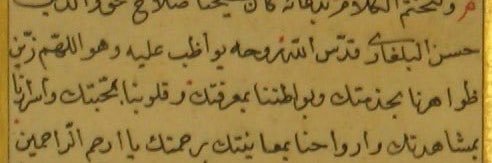 ولنختم الكلام بدعاء كان شيخنا صلاح
حسن البلغاري قدّس اللّه روحه يواظب عليه وهو اللّهمّ زيّن
ظواهرنا بخدمتك وبواطننا بمعرفتك وقلوبنا بمحبّتك واسرارنا
بمشاهدتك وارواحنا بمعاينتك برحمتك يا ارحم الرّاحمين